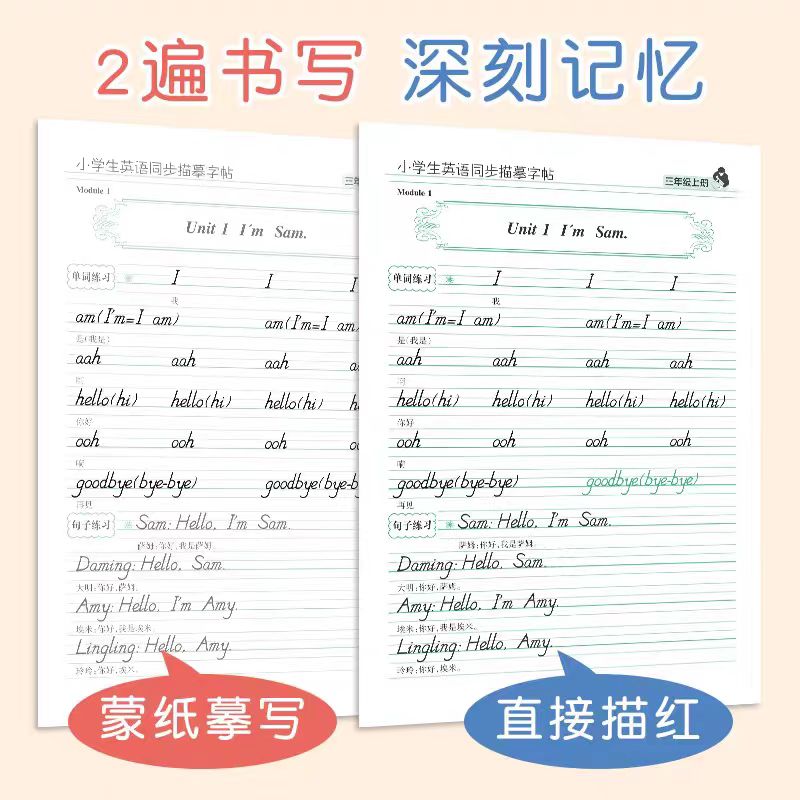 2遍书写 深刻记忆
小学生英语同步描摹字帖
三年
Module 1
Unit 1 I'm Sam.
单词练习
I I I
我
am(I'm=I am) am(I'm=I am)
是(我是)
aah aah aah
啊
hello(hi) hello(hi) hello(hi) h
你好
ooh ooh ooh o
噢
goodbye(bye-bye) goodbye(bye-b
再见
句子练习
Sam: Hello, I'm Sam.
萨姆:你好,我是萨姆.
Daming: Hello, Sam.
大明:你好,萨姆。
Amy: Hello, I'm Amy.
埃米:你好,我是埃米
Lingling: Hello, Amy.
玲玲:你好,埃米。
蒙纸摹写
小学生英语同步描摹字帖
三年级上册
Module 1
Unit 1 I'm Sam.
单词练习
I I I
我
am(I'm=I am) am(I'm=I am)
是(我是)
aah aah aah aah
啊
hello(hi) hello(hi) hello(hi) hello(hi)
你好
ooh ooh ooh ooh
噢
goodbye(bye-bye) goodbye(bye-bye)
再见
句子练习
Sam: Hello, I'm Sam.
萨姆:你好,我是萨姆。
Daming: Hello, Sam.
大明:你好,萨姆。
Amy: Hello, I'm Amy.
埃米:你好,我是埃米。
Lingling: Hello, Amy.
玲玲:你好,埃米。
直接描红